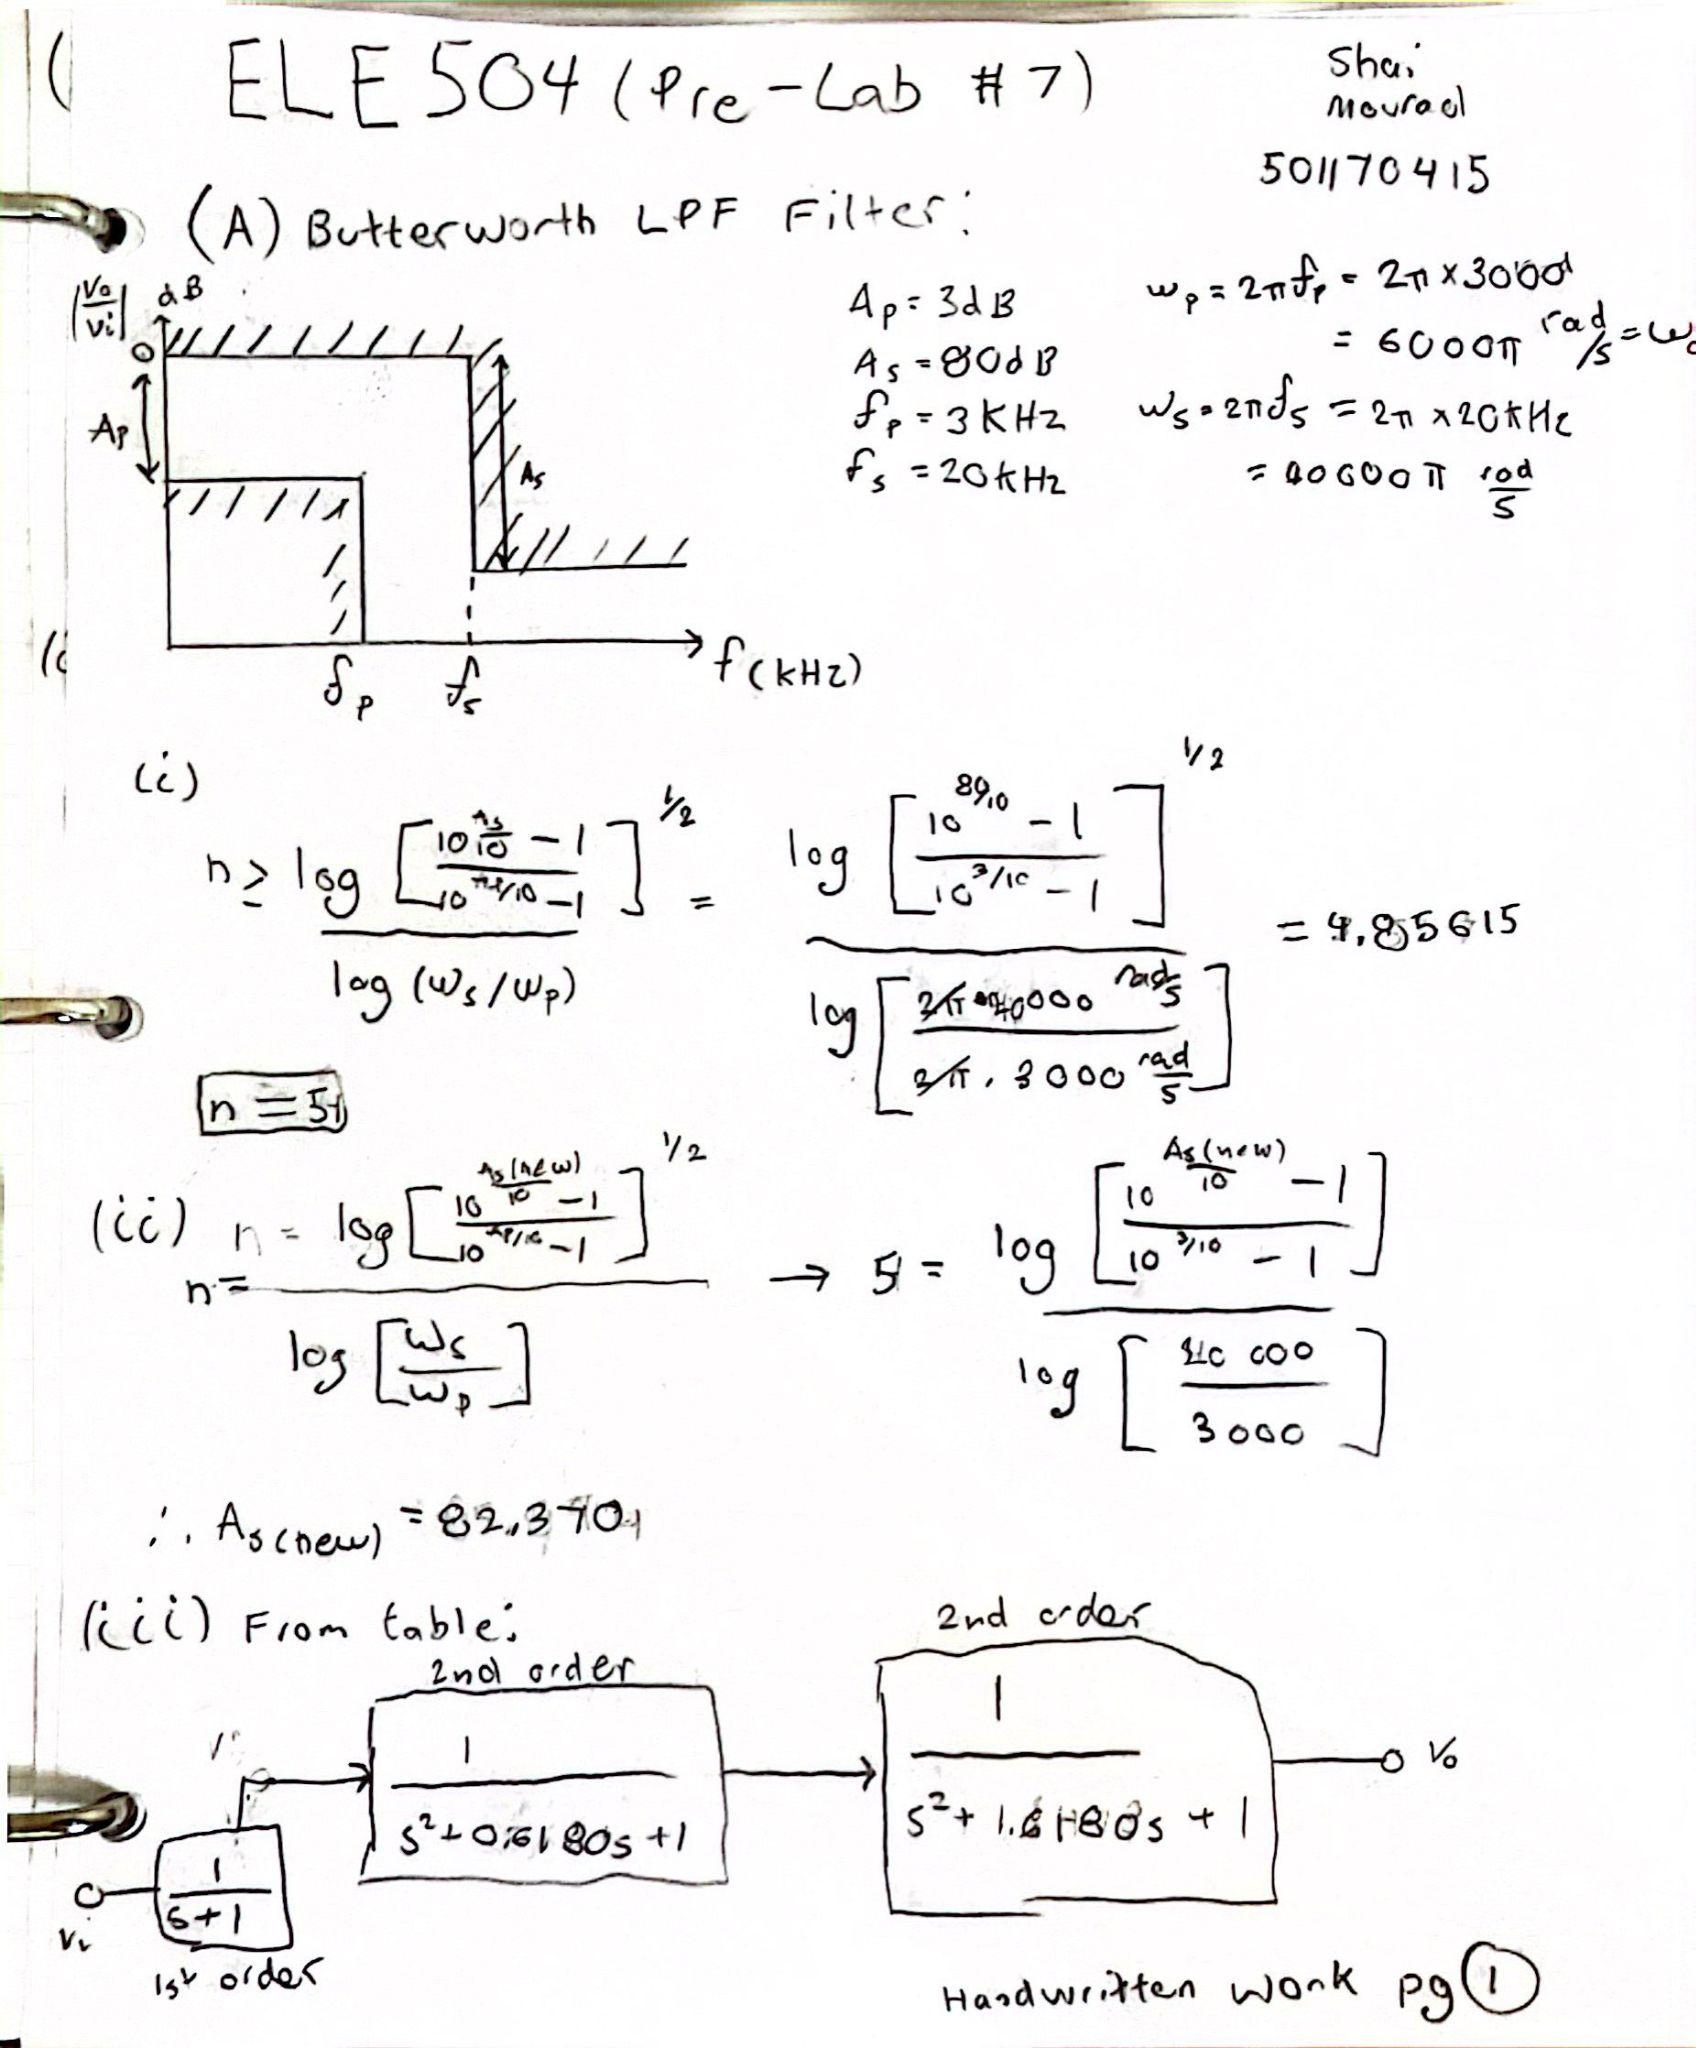 ELE 504 (Pre-Lab #7)
Shai
Mourad
501170415
(A) Butterworth LPF Filter:
|Vo/Vi| dB
0
Ap
As
fp fs f(kHz)
Ap = 3dB
As = 80dB
fp = 3 KHz
fs = 20kHz
ωp = 2πfp = 2π×3000
= 6000π rad/s = ωo
ωs = 2πfs = 2π×20kHz
= 40000π rad/s
(i)
n ≥ log [(10^(As/10) - 1)/(10^(Ap/10) - 1)]^1/2 / log (ωs/ωp) = log [(10^(80/10) - 1)/(10^(3/10) - 1)]^1/2 / log [2π·20000 rad/s / 2π·3000 rad/s] = 4.85615
n = 5
(ii) n = log [(10^(As(new)/10) - 1)/(10^(Ap/10) - 1)]^1/2
n = / log [ωs/ωp] → 5 = log [(10^(As(new)/10) - 1)/(10^(3/10) - 1)] / log [20 000/3000]
∴ As(new) = 82.3701
(iii) From table:
2nd order
2nd order
1/(s²+0.6180s+1)
1/(s²+1.6180s+1)
Vo
Vi
1/(s+1)
1st order
Handwritten work pg 1